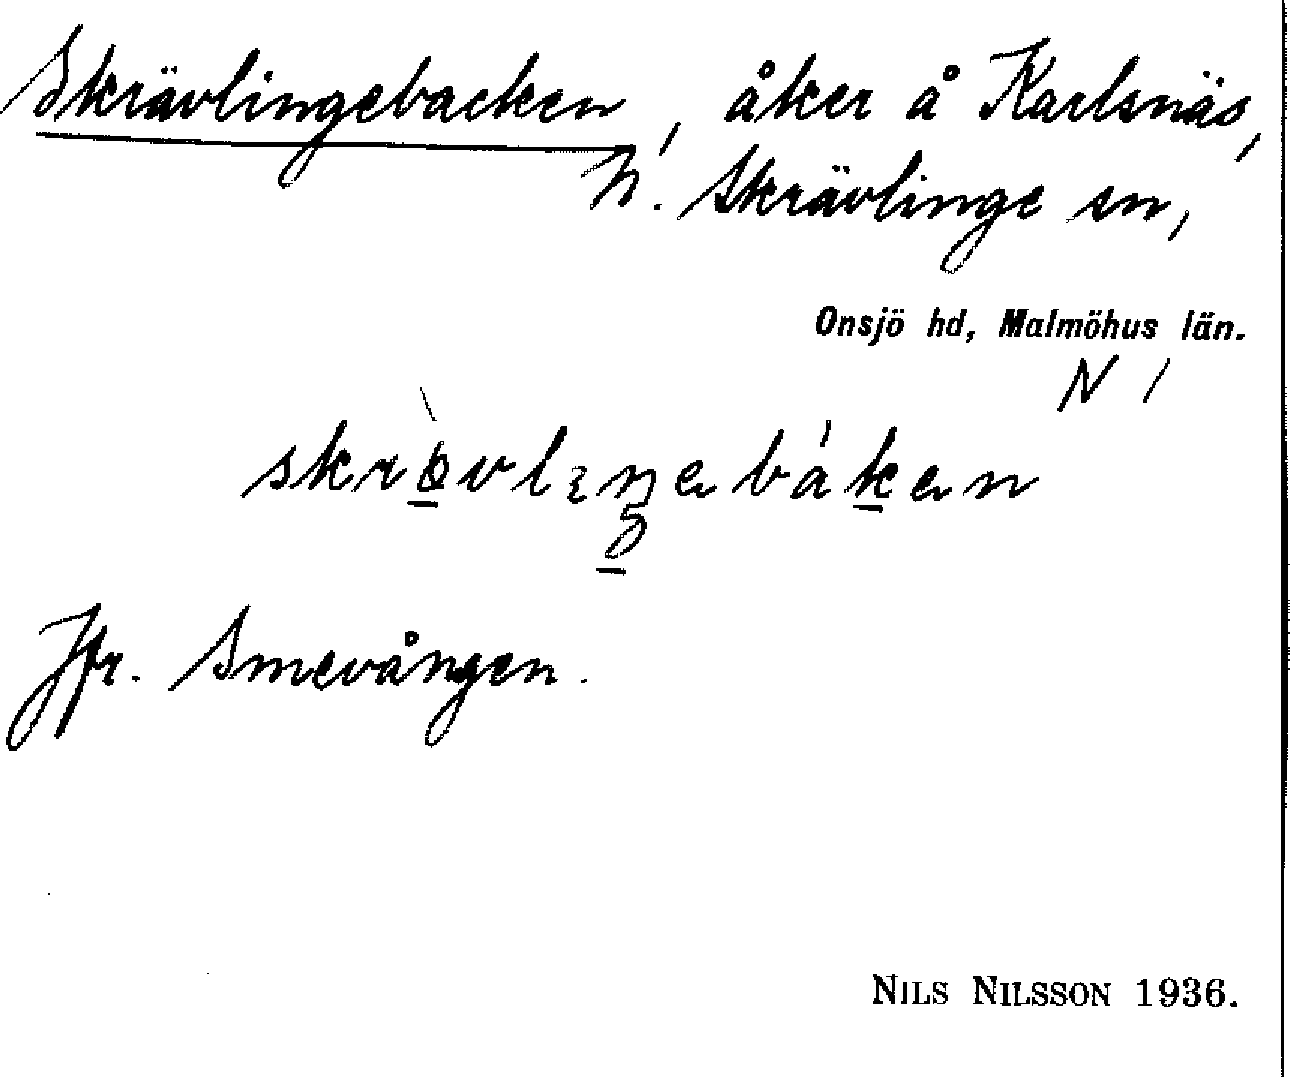 Skrävlingebacken, åker å Karlsnäs,
N. Skrävlinge sn,
Onsjö hd, Malmöhus län.
N 1
Jfr. Smevången.
NILS NILSSON 1936.